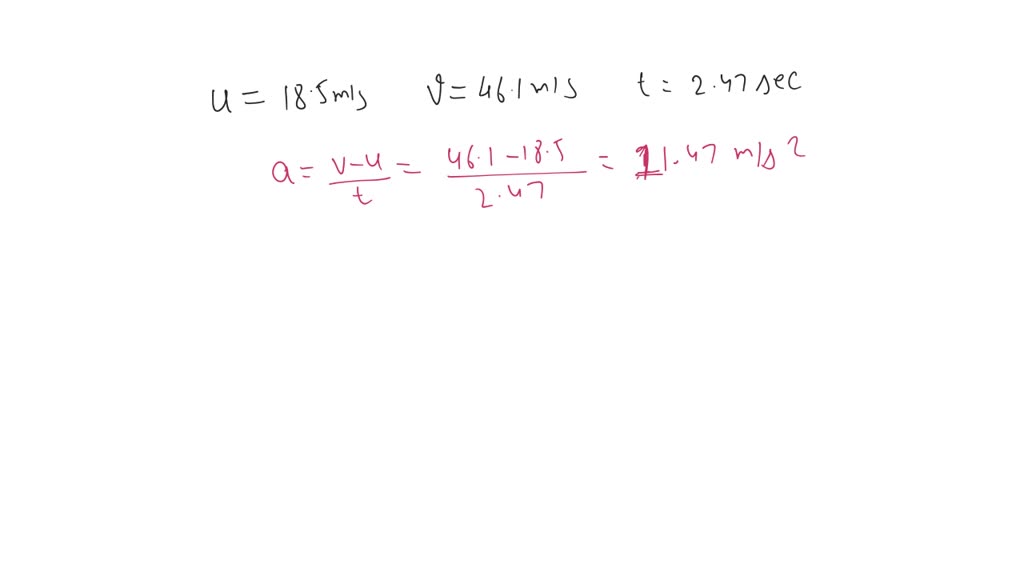 u = 18.5 m/s v = 46.1 m/s t = 2.47 sec
a = v-u/t = 46.1-18.5/2.47 = 11.47 m/s2